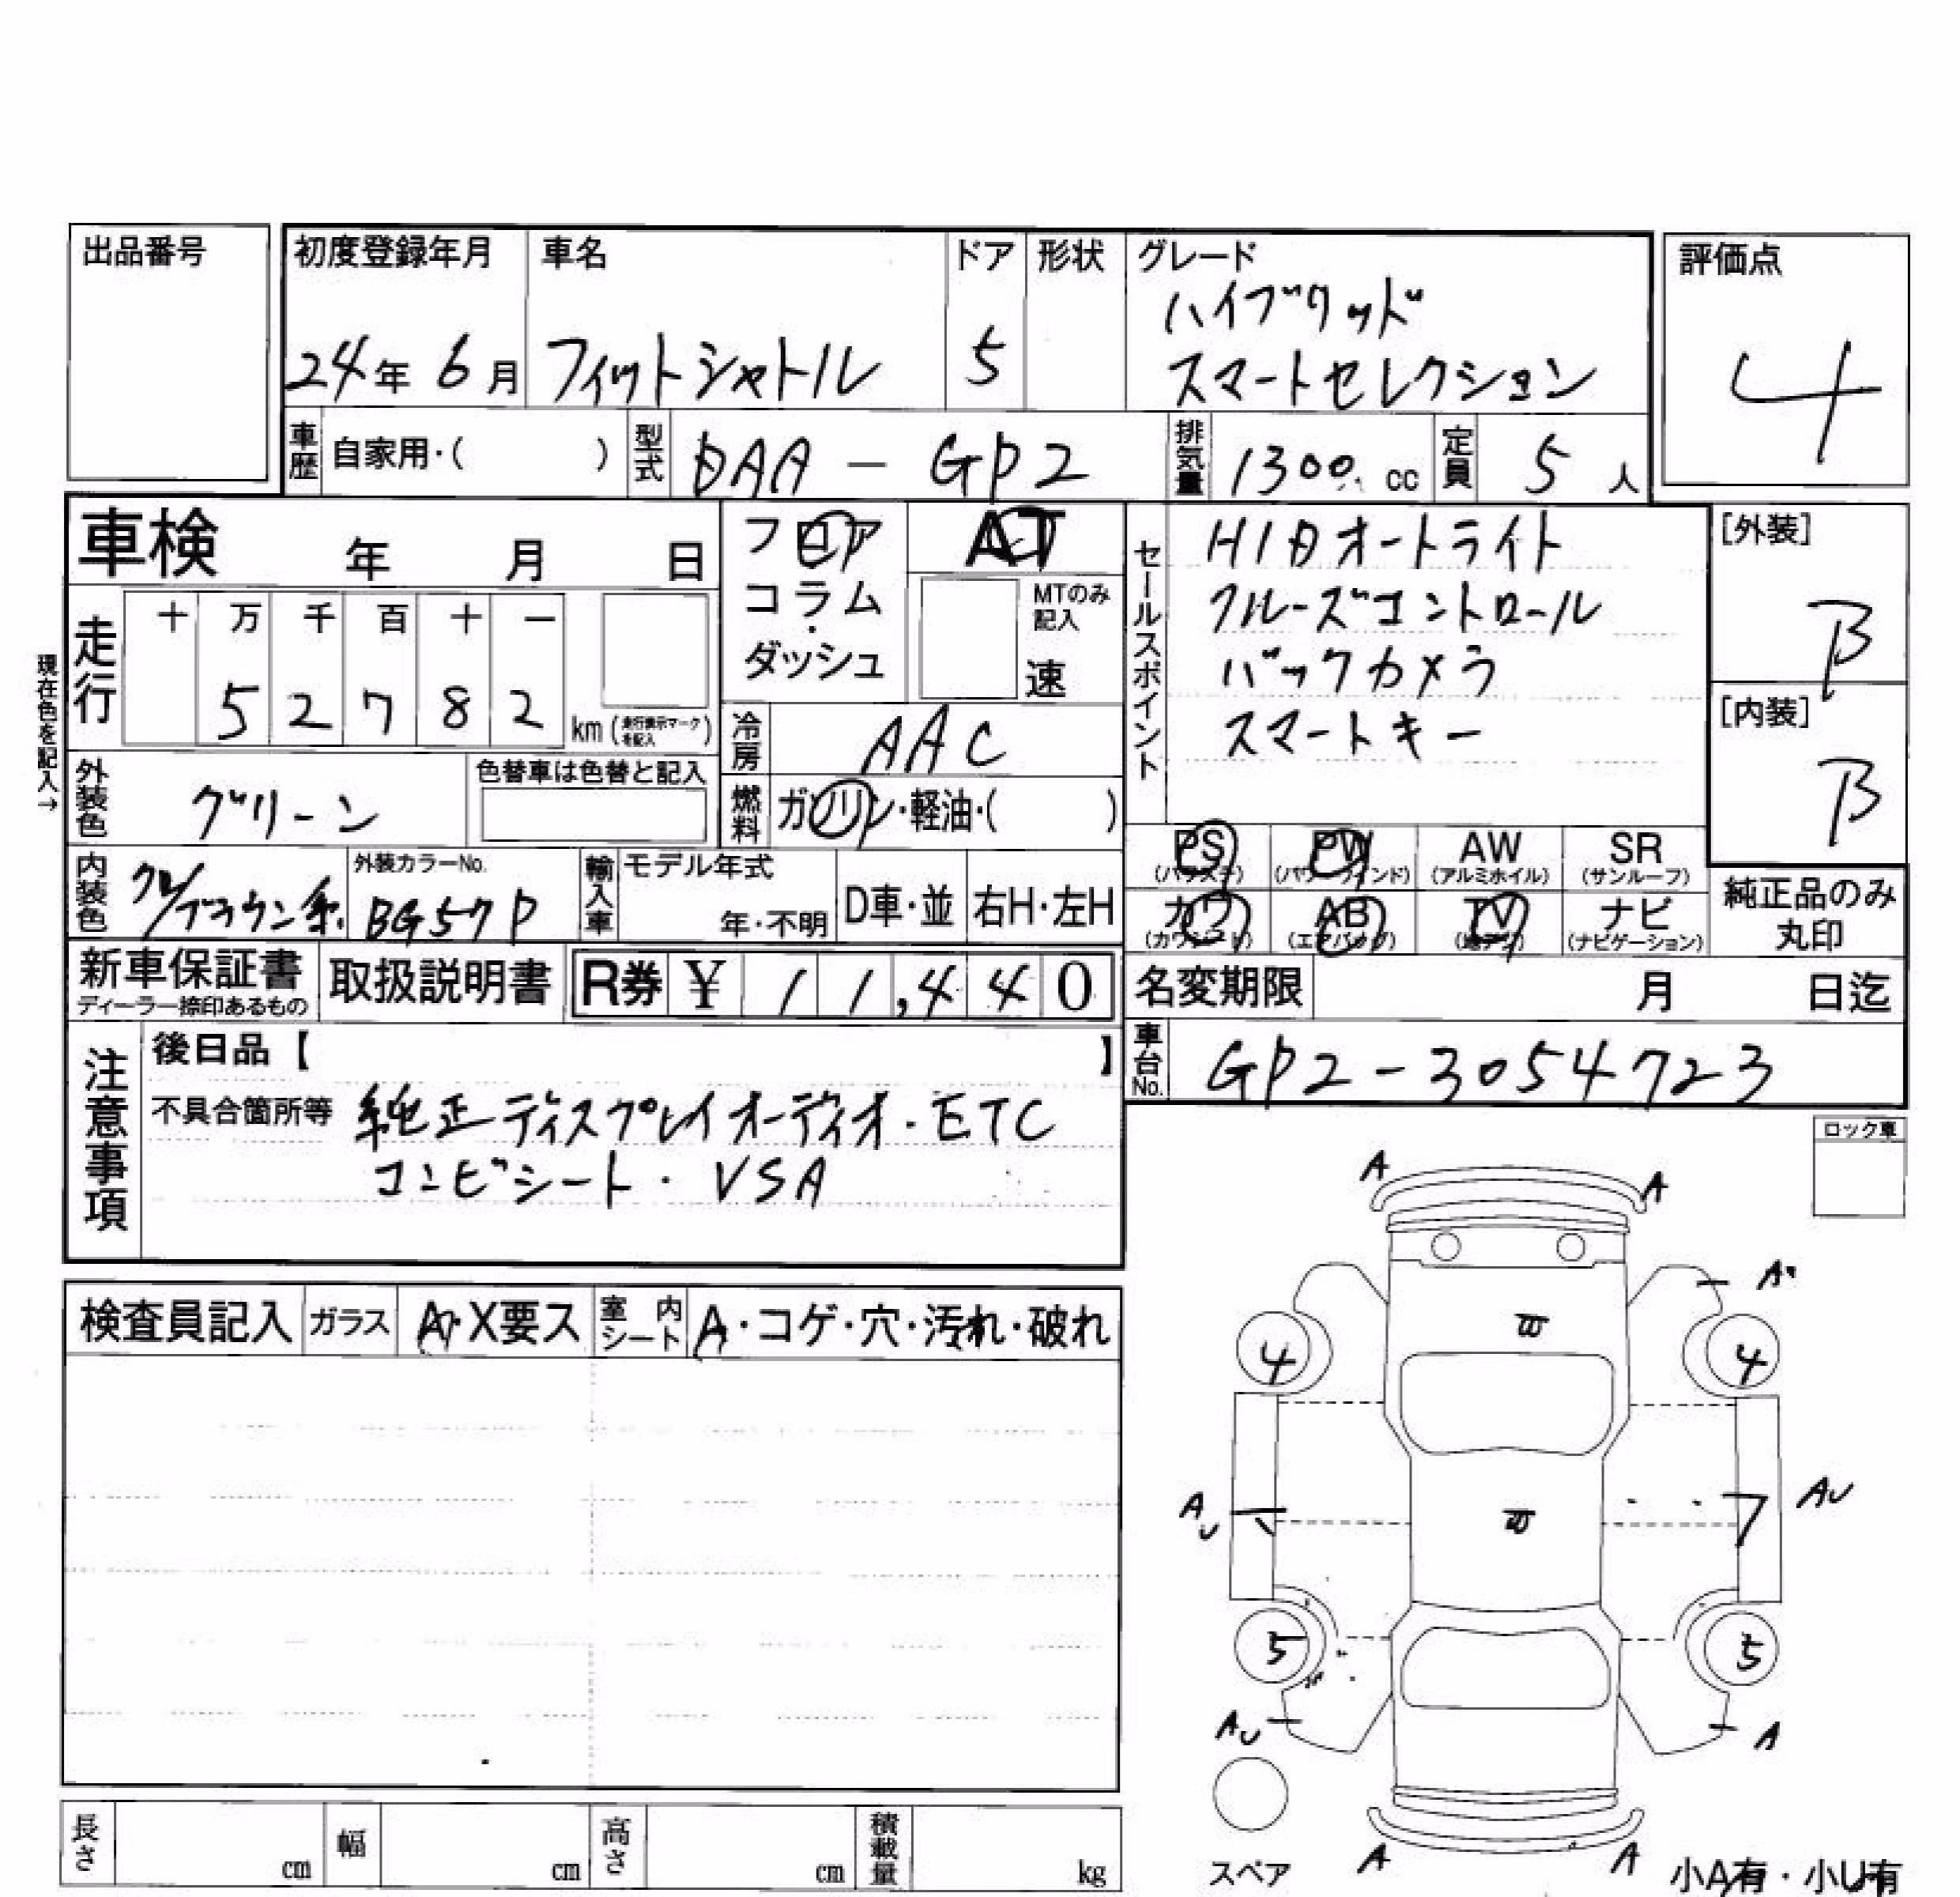 出品番号
初度登録年月 車名 ドア 形状 グレード 評価点
ハイブリッド
24年 6月 フィットシャトル 5 スマートセレクション 4
車歴 自家用・( ) 型式 DAA - GP2 排気量 1300 cc 定員 5 人
車検 年 月 日
フロア
コラム
・
ダッシュ
AT
MTのみ
記入
速
セールスポイント
HIDオートライト
クルーズコントロール
バックカメラ
スマートキー
[外装]
B
[内装]
B
現在色を記入→
走行 十 万 千 百 十 一
5 2 7 8 2 km (走行表示マークを記入)
冷房 AAC
外装色 グリーン 色替車は色替と記入
燃料 ガソリン・軽油・( )
PS (パワステ) PW (パワーウインド) AW (アルミホイル) SR (サンルーフ)
カワ (カワシート) AB (エアバッグ) TV (地デジ) ナビ (ナビゲーション)
純正品のみ
丸印
内装色 クロ/ブラウン系 外装カラーNo. BG57P 輸入車 モデル年式 年・不明 D車・並 右H・左H
新車保証書 取扱説明書 R券 ¥ 11,440
ディーラー捺印あるもの
名変期限 月 日迄
車台No. GP2-3054723
注意事項
後日品【 】
不具合箇所等 純正ディスプレイオーディオ・ETC
コンビシート・VSA
ロック車
検査員記入 ガラス A・X要ス 室内シート A・コゲ・穴・汚れ・破れ
A A
A
4 4
AU AU
5 5
AU A
スペア A A 小A有・小U有
長さ cm 幅 cm 高さ cm 積載量 kg